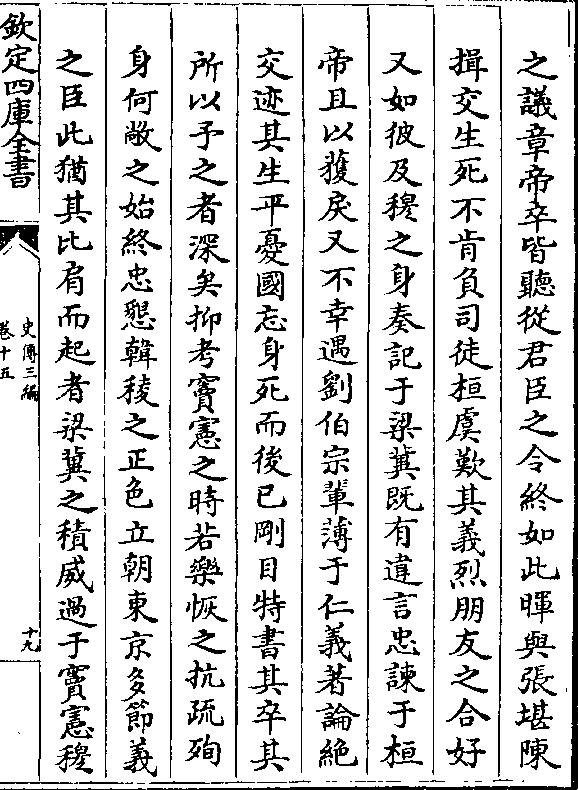 之議章帝卒皆聽從君臣之令終如此暉與張堪陳
揖交生死不肯負司徒桓虞歎其義烈朋友之合好
又如彼及穆之身奏記于梁冀既有違言忠諫于桓
帝且以獲戾又不幸遇劉伯宗輩薄于仁義著論絶
交迹其生平憂國忘身死而後已剛目特書其卒其
所以予之者深矣抑考竇憲之時若樂恢之抗疏殉
身何敞之始終忠懇韓稜之正色立朝東京多節義
之臣此猶其比肩而起者梁冀之積威過于竇憲穆
欽定四庫全書
史傳三編
卷十五
十九